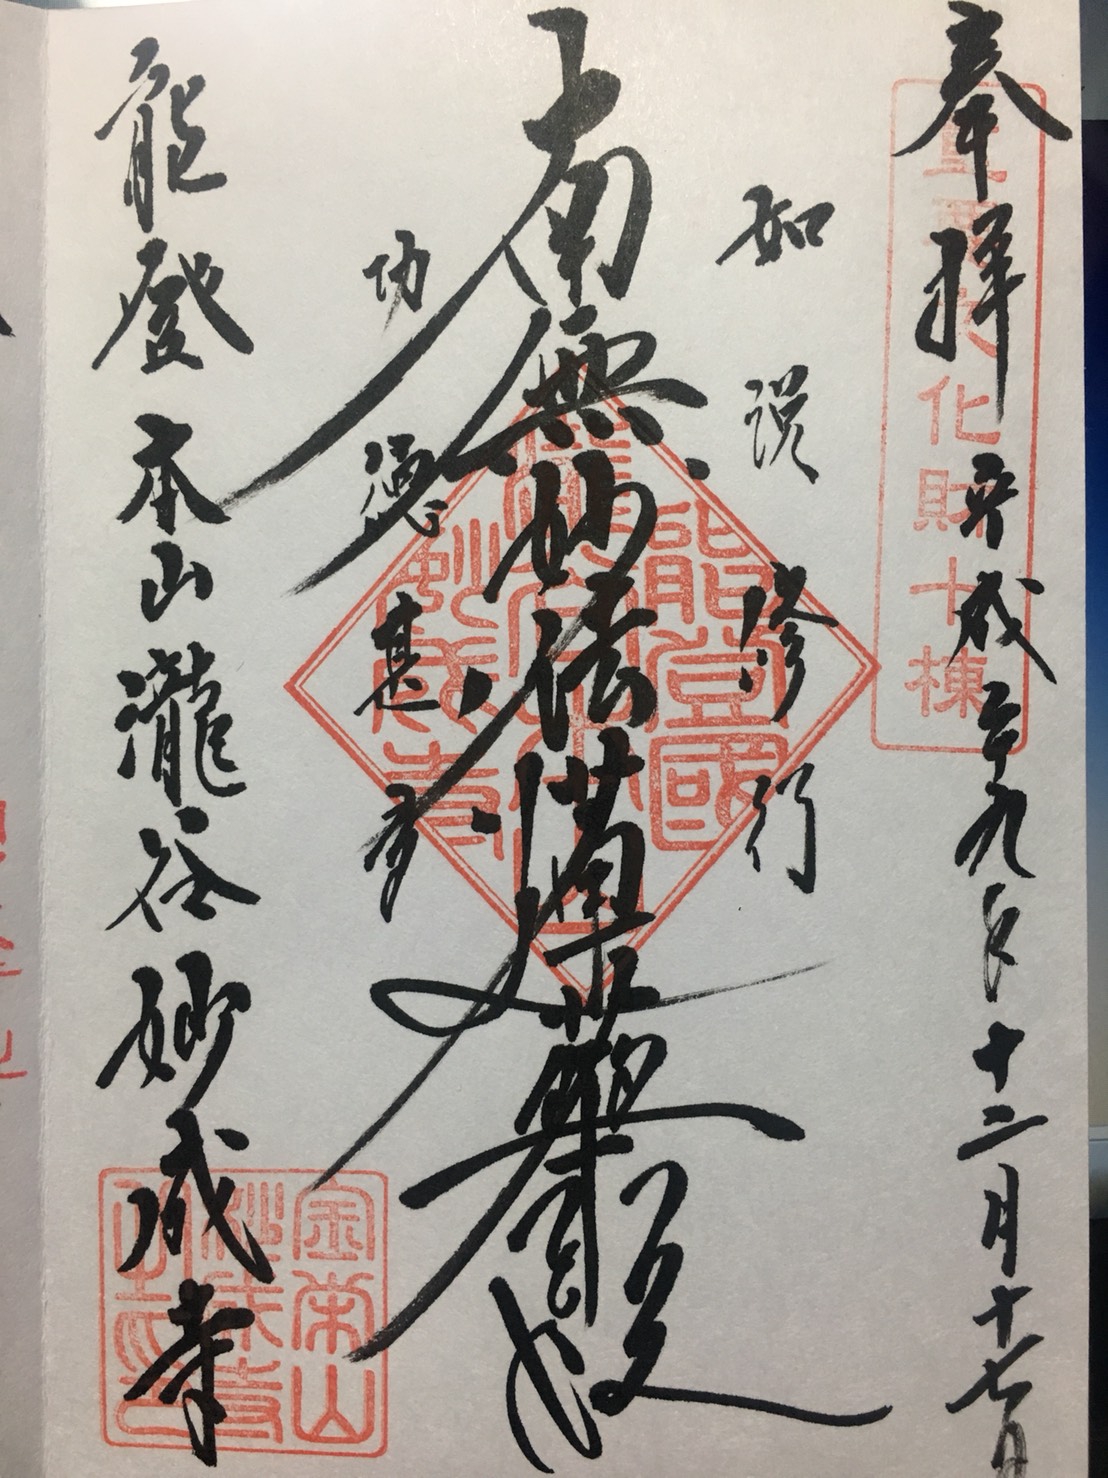 奉拝 平成廿九年十二月十七日
重要文化財十棟
如説修行
南無妙法蓮華経
功徳甚多
能登本山瀧谷妙成寺
能登國
妙成寺
金栄山
妙成寺